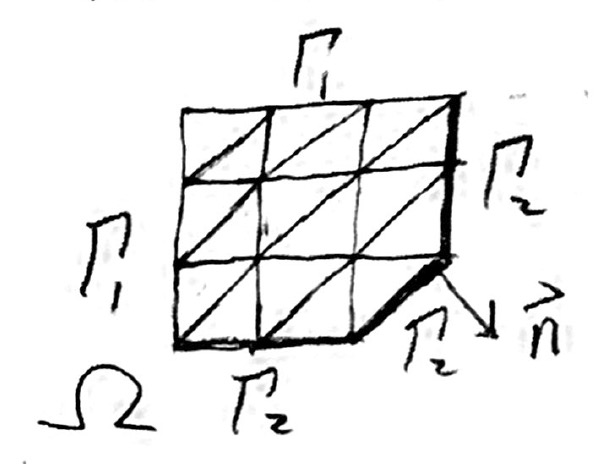 Γ₁
Γ₂
Γ₁
Γ₂
n⃗
Ω
Γ₂